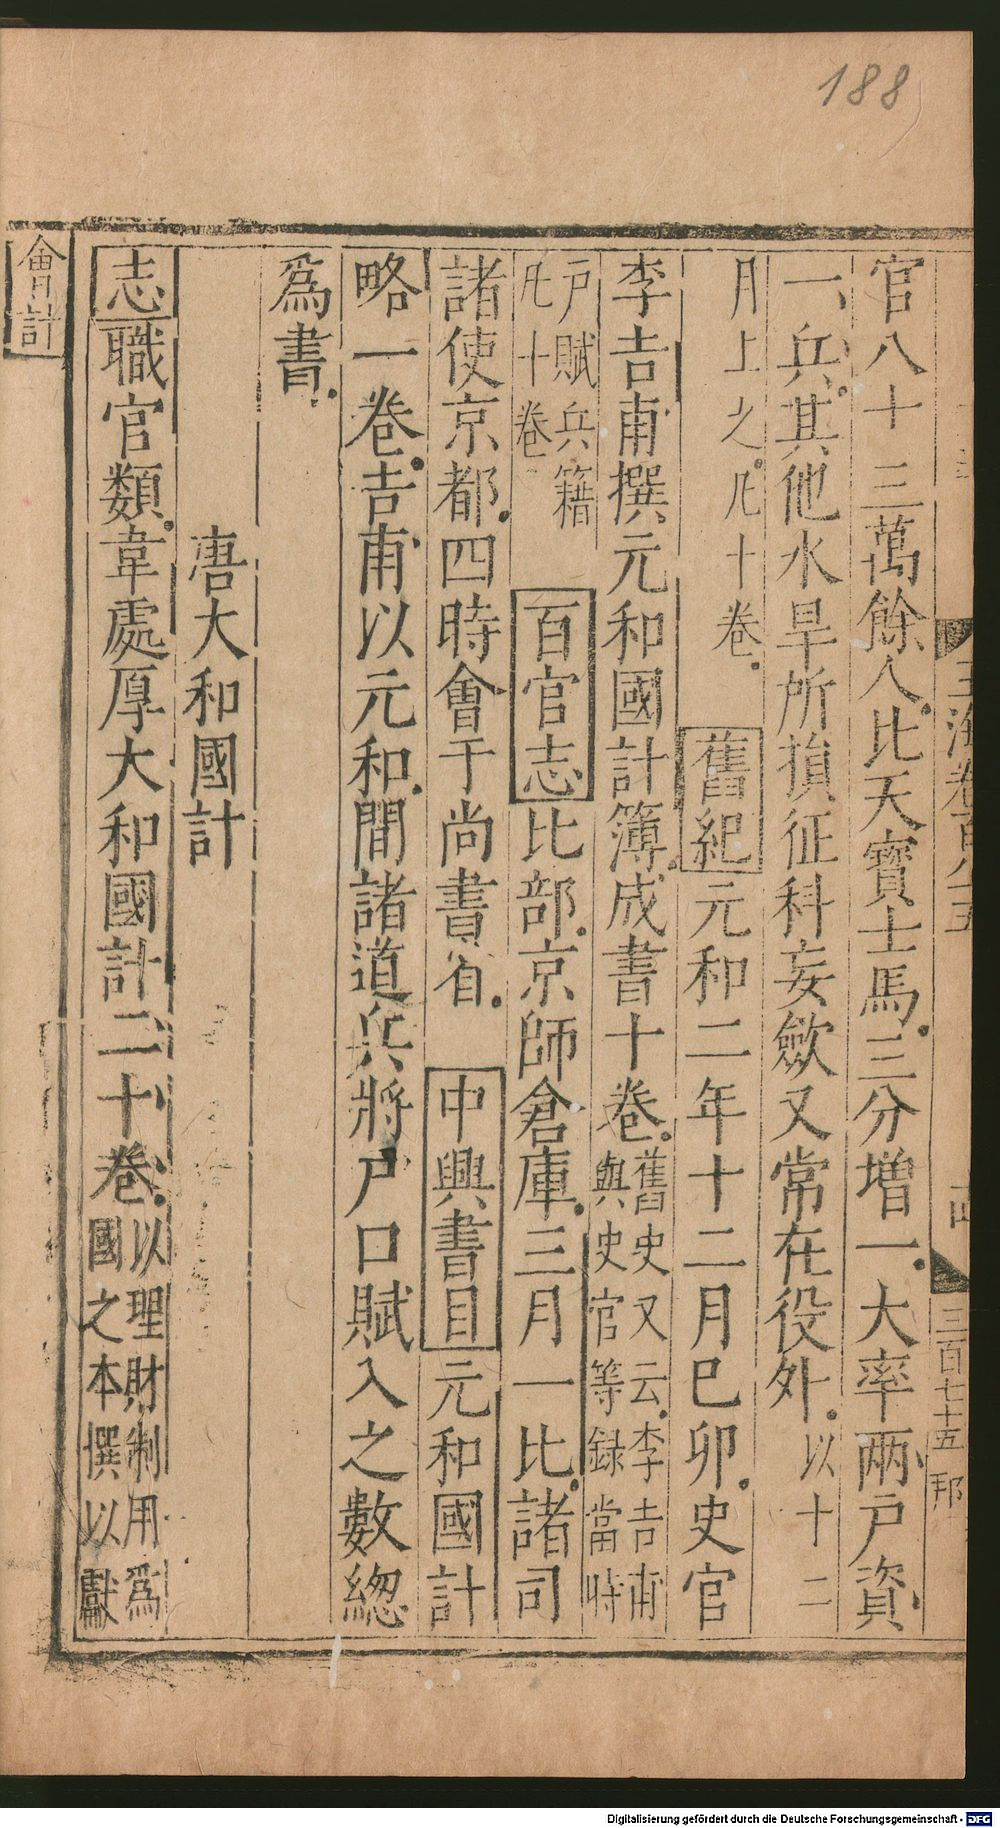 188
官八十三萬餘人比天寶士馬三分增一大率兩戶資
一兵其他水旱所損征科妄斂又常在役外以十二
月上之凡十卷舊紀元和二年十二月己卯史官
李吉甫撰元和國計簿成書十卷舊史又云李吉甫
與史官等録當時
戶賦兵籍
凡十卷
百官志比部京師倉庫三月一比諸司
諸使京都四時會于尚書省中興書目元和國計
略一卷吉甫以元和間諸道兵將戶口賦入之數緫
爲書
唐大和國計
志職官類韋處厚大和國計二十卷以理財制用爲
國之本撰以獻
會計
玉海卷百八十五
三百七十五
Digitalisierung gefördert durch die Deutsche Forschungsgemeinschaft - DFG